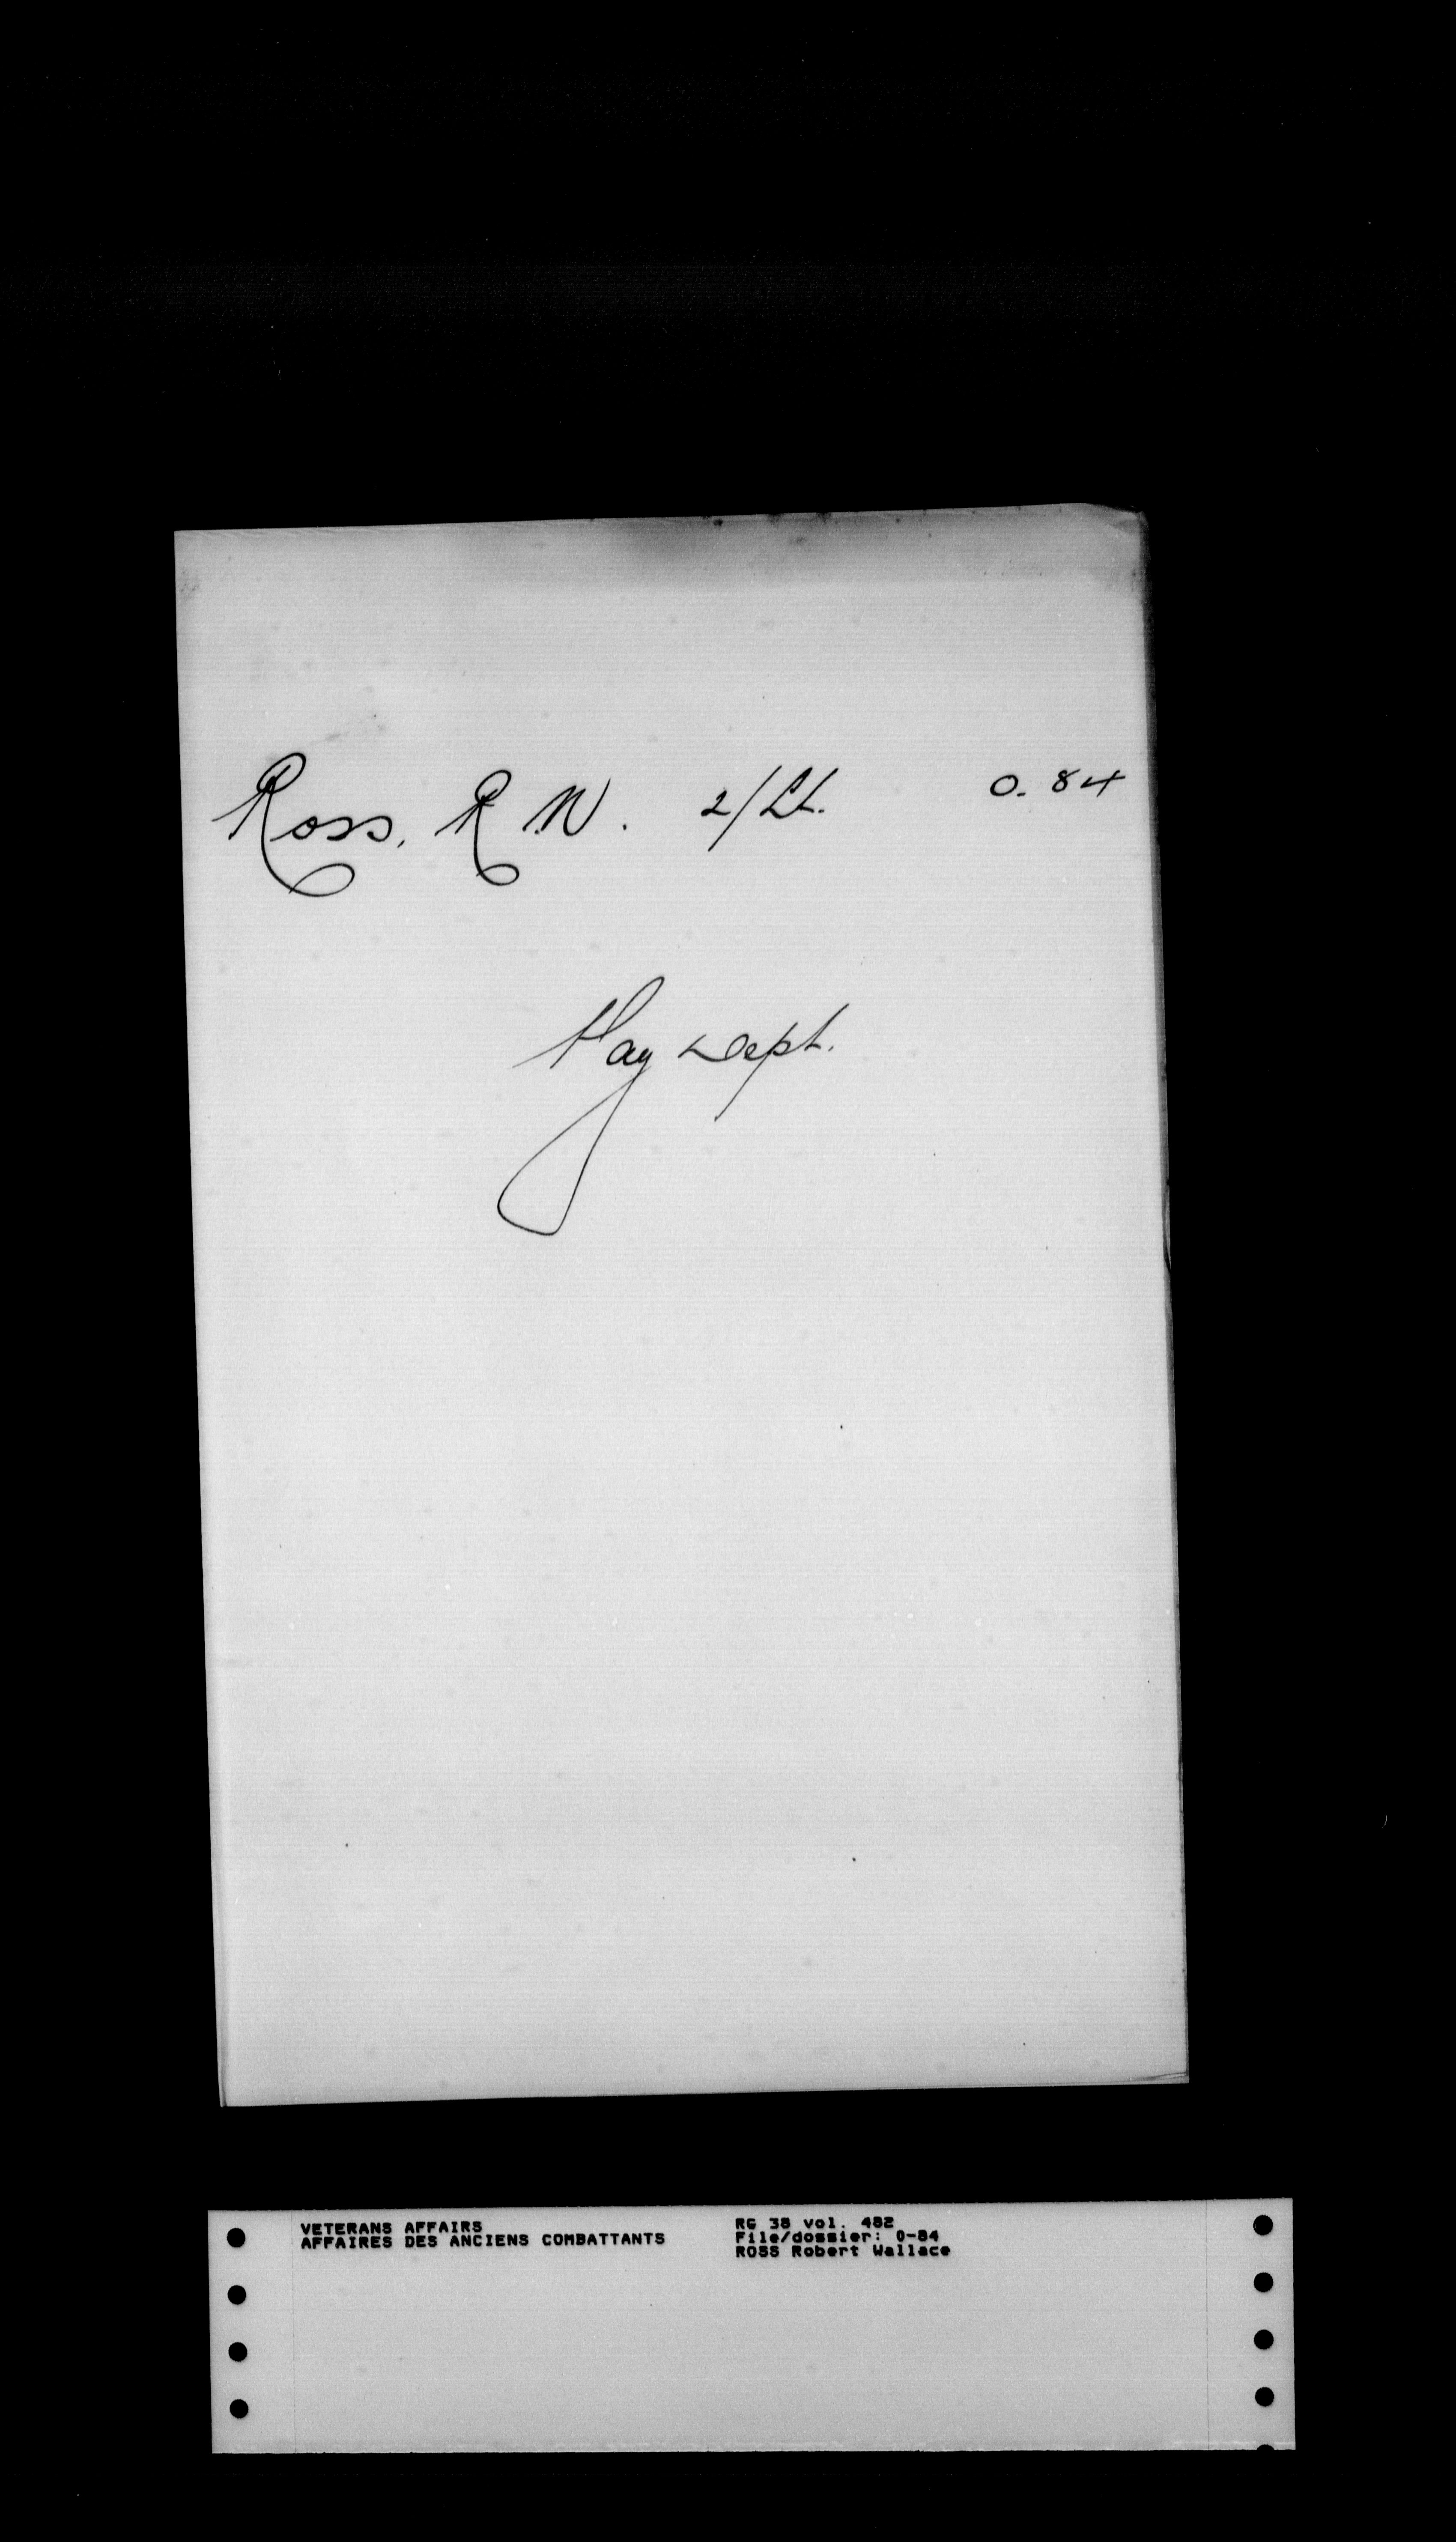 Ross, R. W. 2/Lt. 0. 84
Pay Dept.
VETERANS AFFAIRS
AFFAIRES DES ANCIENS COMBATTANTS
RG 38 vol. 482
File/dossier: 0-84
ROSS Robert Wallace